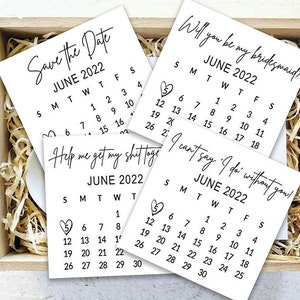 Save the Date
JUNE 2022
S M T W T F S
1 2 3 4
5 6 7 8 9 10 11
Will you be my bridesmaid
JUNE 2022
S M T W T F S
1 2 3 4
5 6 7 8 9 10 11
12 13 14 15 16 17 18
Help me get my shit
JUNE 2022
S M T W
1
5 6 7 8
12 13 14 15
19 20 21 22
26 27 28 29
I can't say I do without you!
JUNE 2022
S M T W T F S
1 2 3 4
5 6 7 8 9 10 11
12 13 14 15 16 17 18
19 20 21 22 23 24 25
26 27 28 29 30